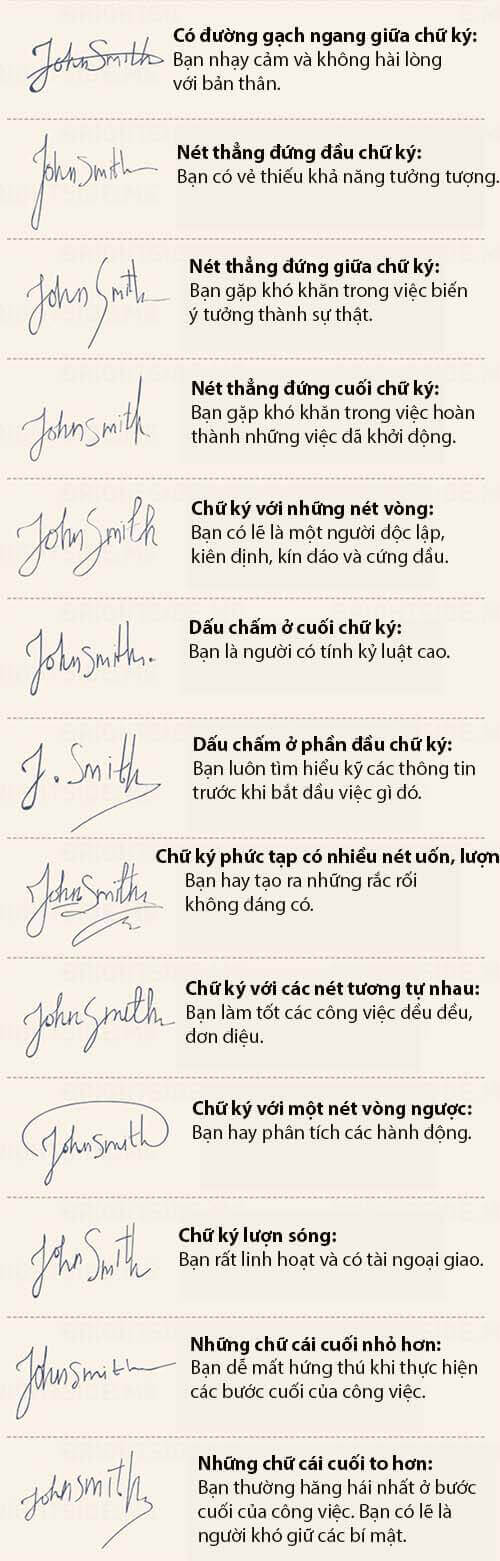 John Smith
Có đường gạch ngang giữa chữ ký:
Bạn nhạy cảm và không hài lòng
với bản thân.
John Smith
Nét thẳng đứng đầu chữ ký:
Bạn có vẻ thiếu khả năng tưởng tượng.
John Smith
Nét thẳng đứng giữa chữ ký:
Bạn gặp khó khăn trong việc biến
ý tưởng thành sự thật.
John Smith
Nét thẳng đứng cuối chữ ký:
Bạn gặp khó khăn trong việc hoàn
thành những việc đã khởi động.
John Smith
Chữ ký với những nét vòng:
Bạn có lẽ là một người độc lập,
kiên định, kín đáo và cứng đầu.
John Smith.
Dấu chấm ở cuối chữ ký:
Bạn là người có tính kỷ luật cao.
J. Smith
Dấu chấm ở phần đầu chữ ký:
Bạn luôn tìm hiểu kỹ các thông tin
trước khi bắt đầu việc gì đó.
John Smith
Chữ ký phức tạp có nhiều nét uốn, lượn
Bạn hay tạo ra những rắc rối
không đáng có.
John Smith
Chữ ký với các nét tương tự nhau:
Bạn làm tốt các công việc đều đều,
đơn điệu.
John Smith
Chữ ký với một nét vòng ngược:
Bạn hay phân tích các hành động.
John Smith
Chữ ký lượn sóng:
Bạn rất linh hoạt và có tài ngoại giao.
John Smith
Những chữ cái cuối nhỏ hơn:
Bạn dễ mất hứng thú khi thực hiện
các bước cuối của công việc.
John Smith
Những chữ cái cuối to hơn:
Bạn thường hăng hái nhất ở bước
cuối của công việc. Bạn có lẽ là
người khó giữ các bí mật.